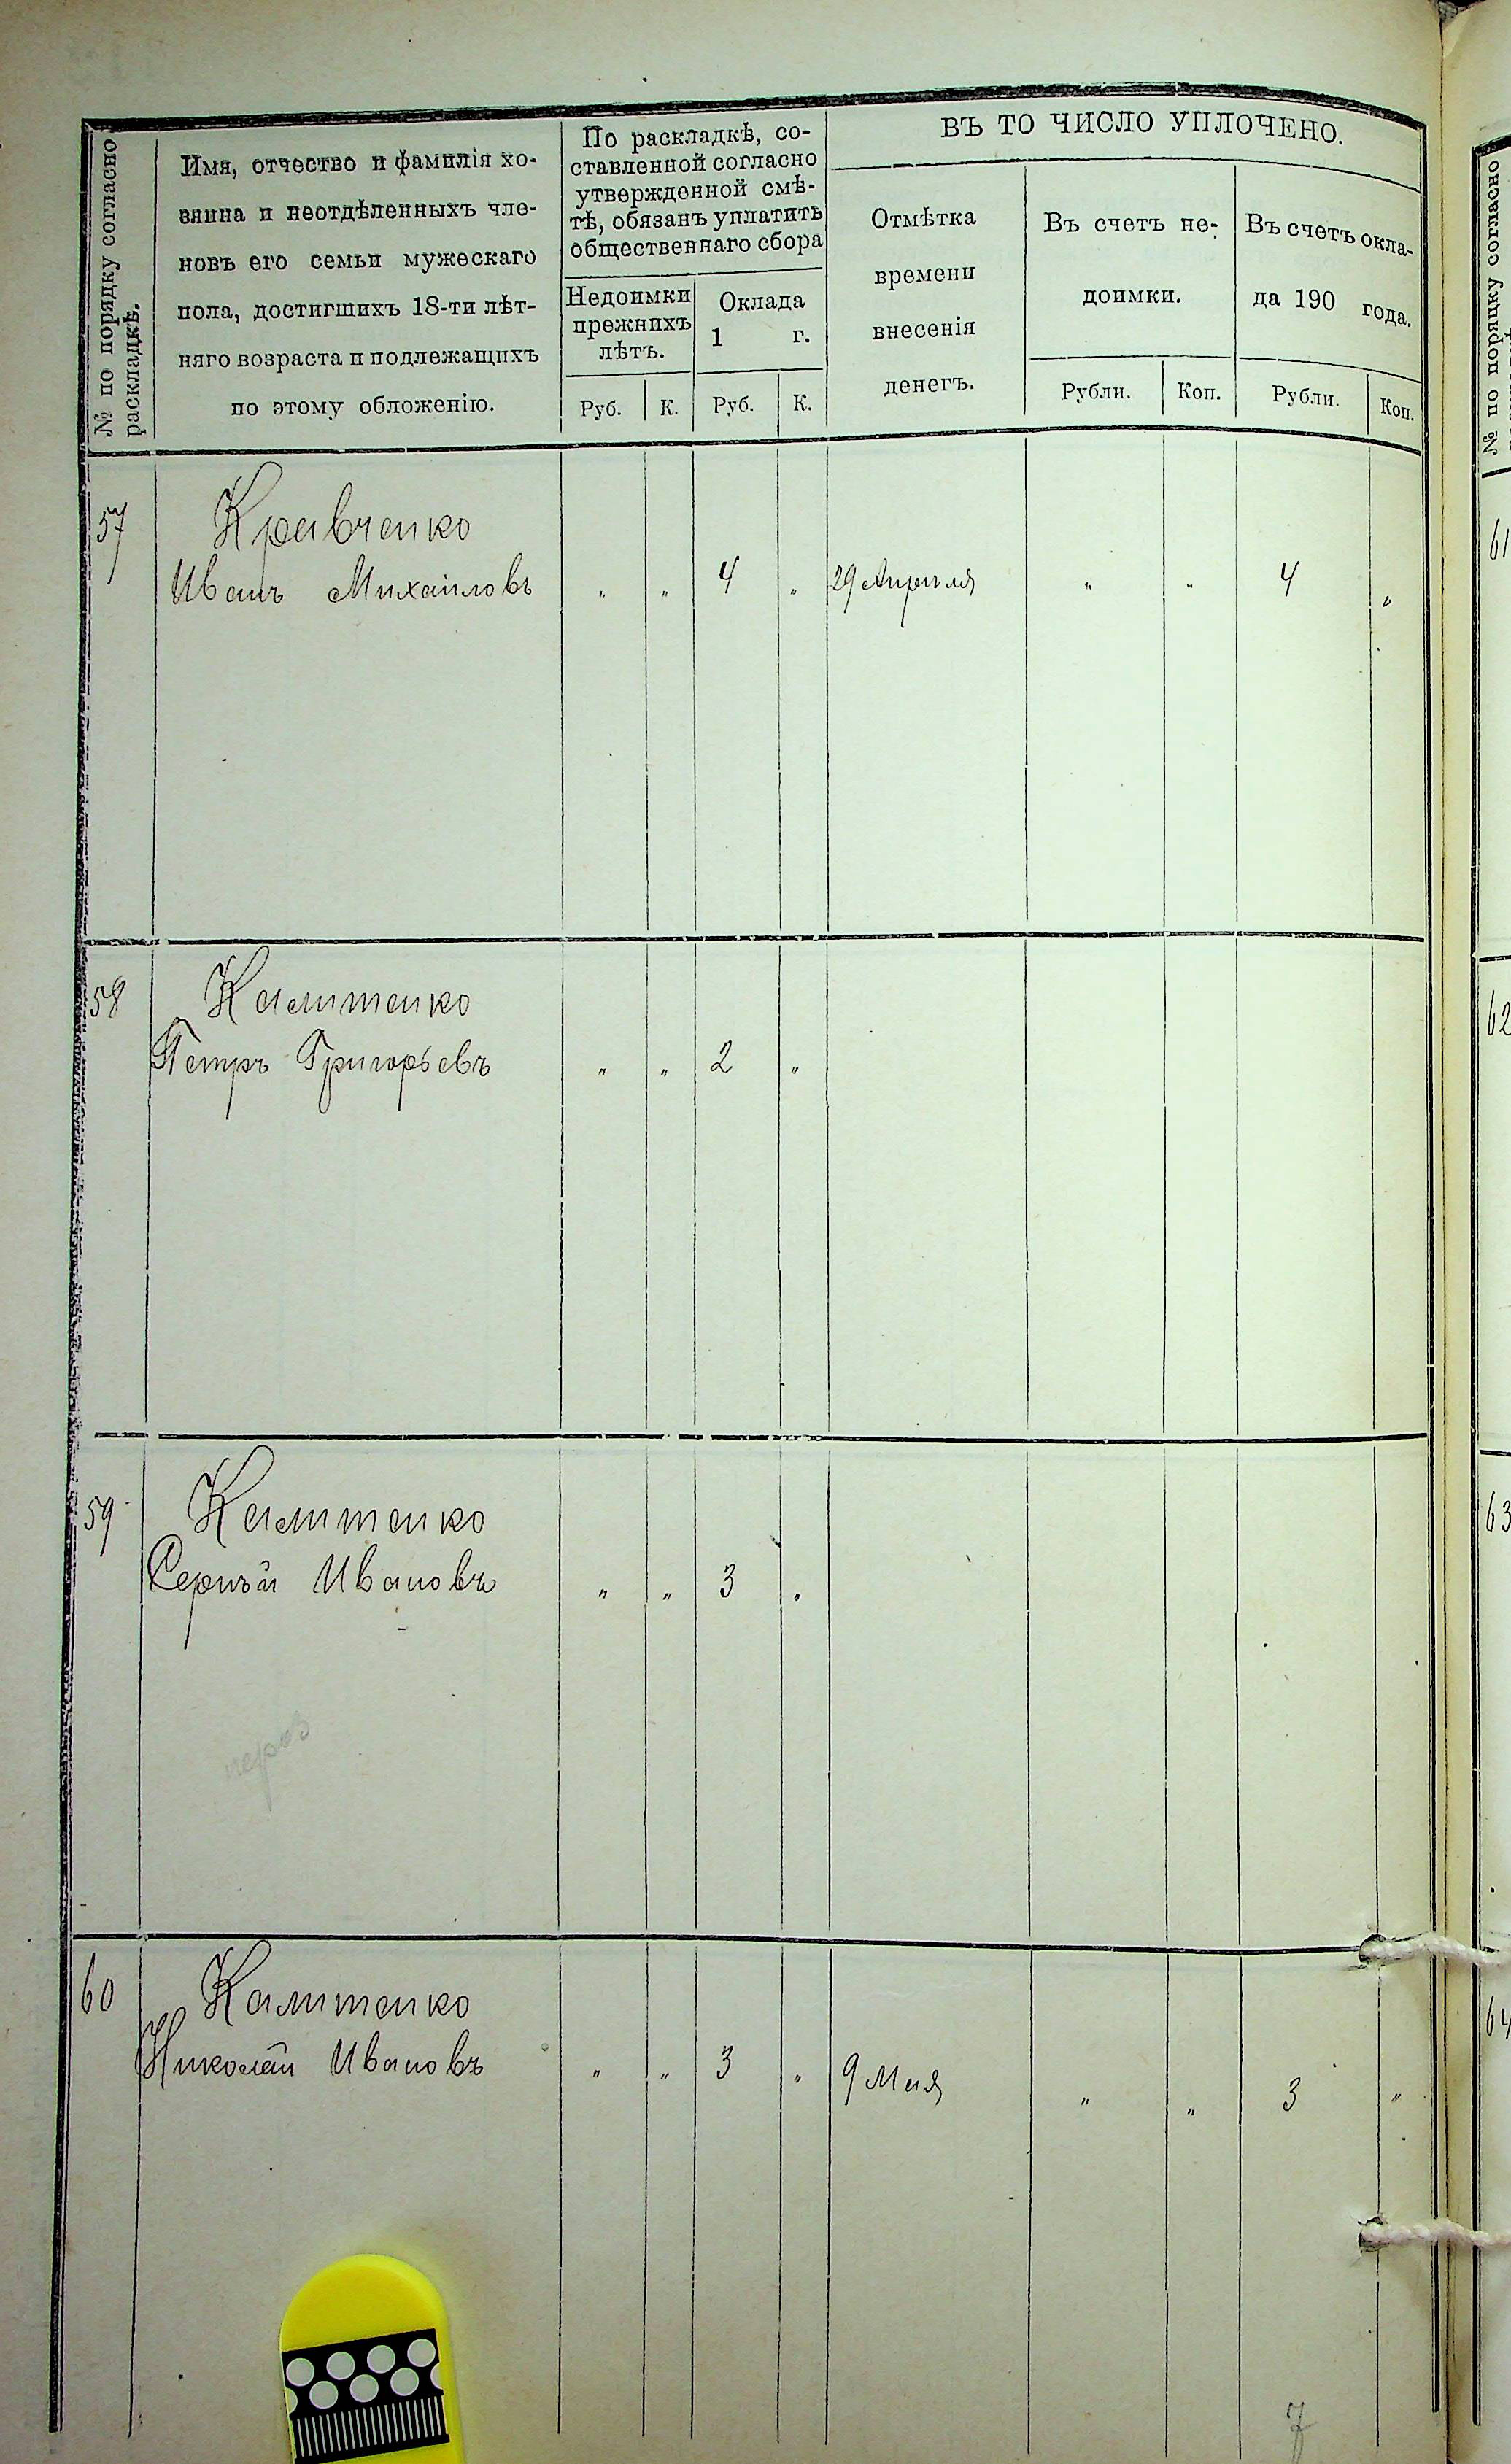 № по порядку согласно
раскладкѣ.
Имя, отчество и фамилія хо-
зяина и неотдѣленныхъ чле-
новъ его семьи мужескаго
пола, достигшихъ 18-ти лѣт-
няго возраста и подлежащихъ
по этому обложенію.
По раскладкѣ, со-
ставленной согласно
утвержденной смѣ-
тѣ, обязанъ уплатить
общественнаго сбора
Недоимки
прежнихъ
лѣтъ.
Оклада
1 г.
Руб. К. Руб. К.
ВЪ ТО ЧИСЛО УПЛОЧЕНО.
Отмѣтка
времени
внесенія
денегъ.
Въ счетъ не-
доимки.
Рубли. Коп.
Въ счетъ окла-
да 190 года.
Рубли. Коп.
57 Кравченко
Иванъ Михайловъ " " 4 " 29 Апрѣля " " 4 "
58 Калитенко
Петръ Григорьевъ " " 2 "
59 Калитенко
Сергѣй Ивановъ " " 3 "
60 Калитенко
Николай Ивановъ " " 3 " 9 Мая " " 3 "
7
№ по порядку согласно
61
62
63
64